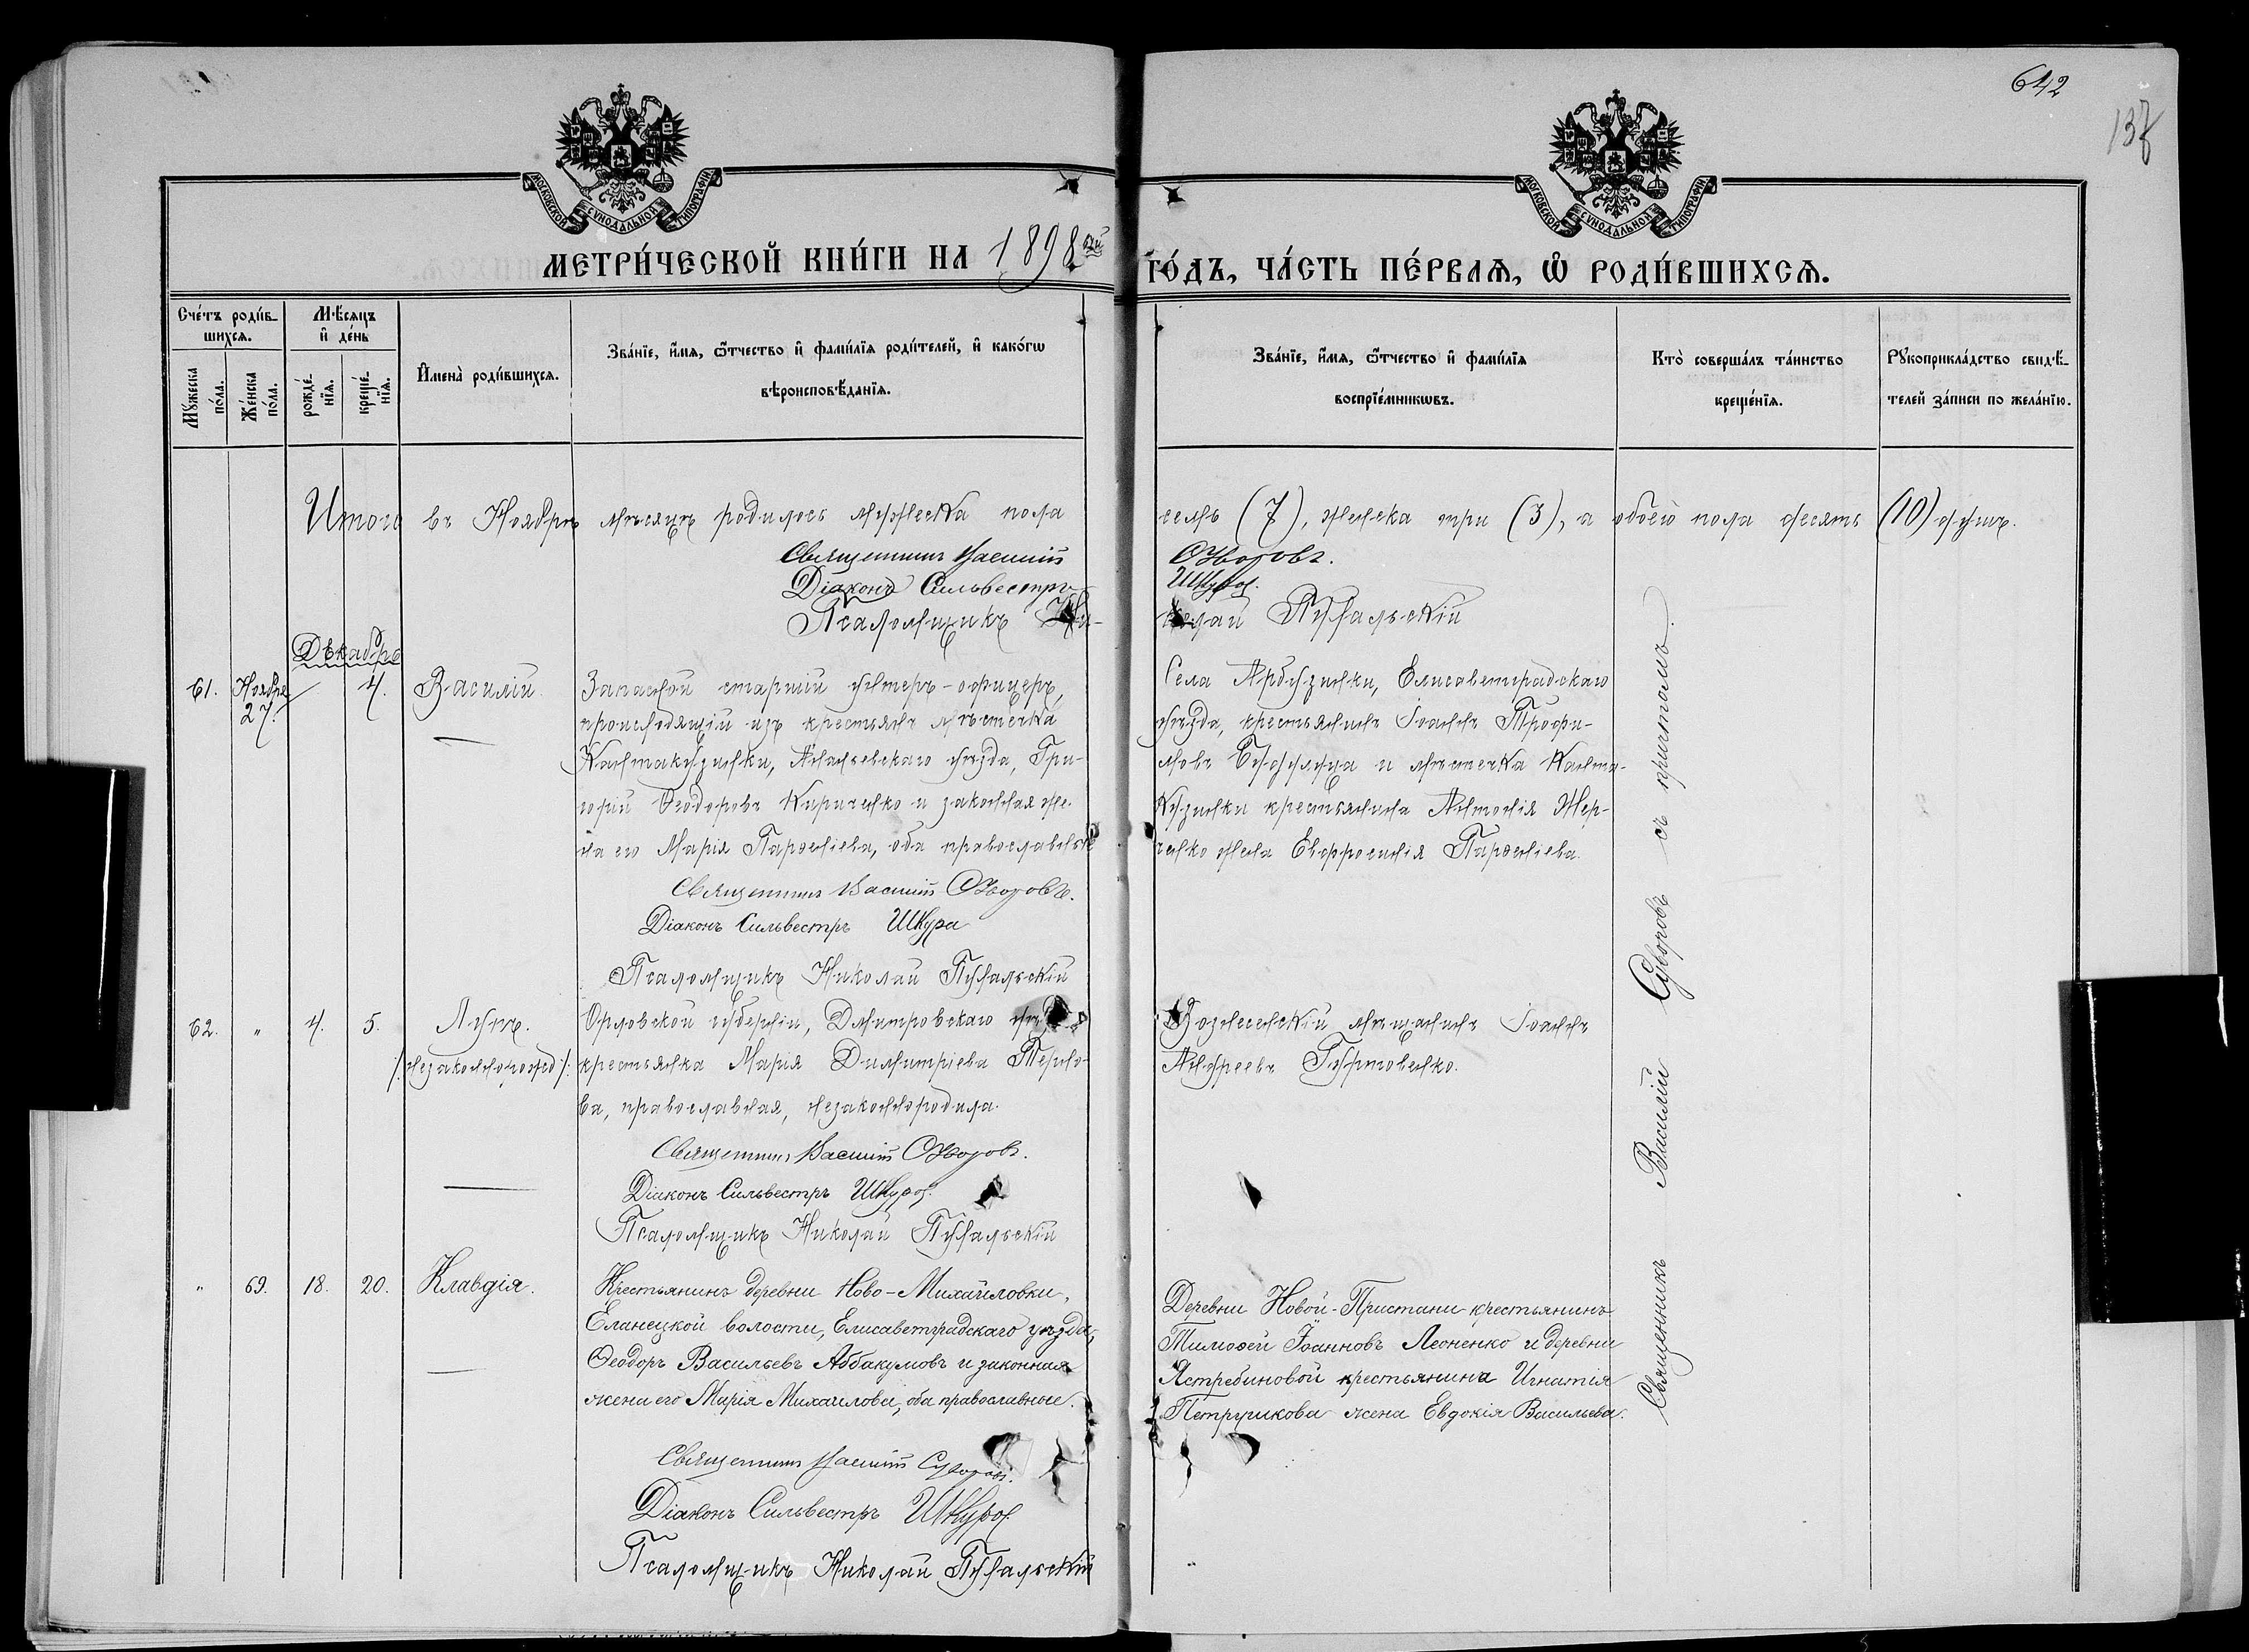 642
137
МОСКОВСКОЙ СѴНОДАЛЬНОЙ ТИПОГРАФІИ
МОСКОВСКОЙ СѴНОДАЛЬНОЙ ТИПОГРАФІИ
МЕТРИ́ЧЕСКОЙ КНИ́ГИ НА 1898 ГО́ДЪ, ЧА́СТЬ ПЕ́РВАѦ, Ѽ РОДИ́ВШИХСѦ.
Сче́тъ роди́в-
шихсѧ.
Мꙋ́жеска по́ла.
Же́нска по́ла.
Мѣ́сяцъ
и҆ де́нь
рожде́-нїѧ.
креще́-нїѧ.
И҆мена̀ роди́вшихсѧ.
Зва́нїе, и҆́мѧ, ѻ҆́тчество и҆ фами́лїѧ роди́телей, и҆ како́гѡ
вѣроисповѣ́данїѧ.
Зва́нїе, и҆́мѧ, ѻ҆́тчество и҆ фами́лїѧ
воспрїе́мникѡвъ.
Кто̀ соверша́лъ та́инство
креще́нїѧ.
Рꙋкоприкла́дство свидѣ́-
телей за́писи по жела́нїю.
Итого въ Ноябрѣ мѣсяцѣ родилось мужеска пола семь (7), женска три (3), а обоего пола десять (10) душъ.
Священникъ Василій Суворовъ.
Діаконъ Сильвестръ Шкура.
Псаломщикъ Николай Пухальскій
Декабрь
61.
Ноября
27.
4.
Василій
Запасной старшій унтеръ-офицеръ,
происходящій изъ крестьянъ мѣстечка
Кантакузинки, Ананьевскаго уѣзда, Гри-
горій Ѳеодоровъ Кириченко и законная же-
на его Марія Парѳеніева, оба православные
Священникъ Василій Суворовъ.
Діаконъ Сильвестръ Шкура
Псаломщикъ Николай Пухальскій
Села Арбузинки, Елисаветградскаго
уѣзда, крестьянинъ Іоаннъ Трофи-
мовъ и мѣстечка Канта-
кузинки крестьянина Антонія Жер-
женко жена Евфросинія Парѳеніева.
62.
"
4.
5.
Лупъ.
/:незаконнорожд:/
Орловской губерніи, Дмитровскаго уѣзда
крестьянка Марія Димитріева Терно-
ва, православная, незаконнородила.
Священникъ Василій Суворовъ.
Діаконъ Сильвестръ Шкура.
Псаломщикъ Николай Пухальскій
Вознесенскій мѣщанинъ Іоаннъ
Андреевъ Гуртовенко.
"
69.
18.
20.
Клавдія.
Крестьянинъ деревни Ново-Михайловки,
Еланецкой волости, Елисаветградскаго уѣзда,
Ѳеодоръ Васильевъ Аввакумовъ и законная
жена его Марія Михаилова, оба православные.
Священникъ Василій Суворовъ.
Діаконъ Сильвестръ Шкура
Псаломщикъ Николай Пухальскій
Деревни Новой-Пристани крестьянинъ
Тимоѳей Іоанновъ Леоненко и деревни
Ястребиновой крестьянина Игнатія
Петрушкова жена Евдокія Васильева.
Священникъ Василій Суворовъ съ причтомъ.